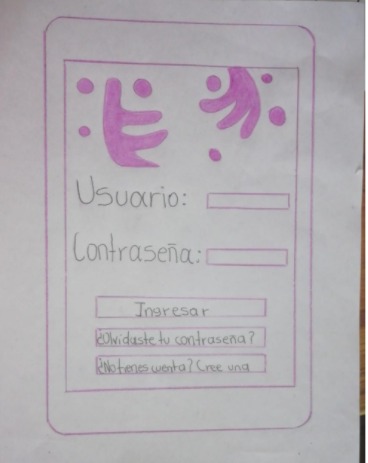 Usuario:
Contraseña:
Ingresar
¿Olvidaste tu contraseña?
¿No tienes cuenta? Cree una